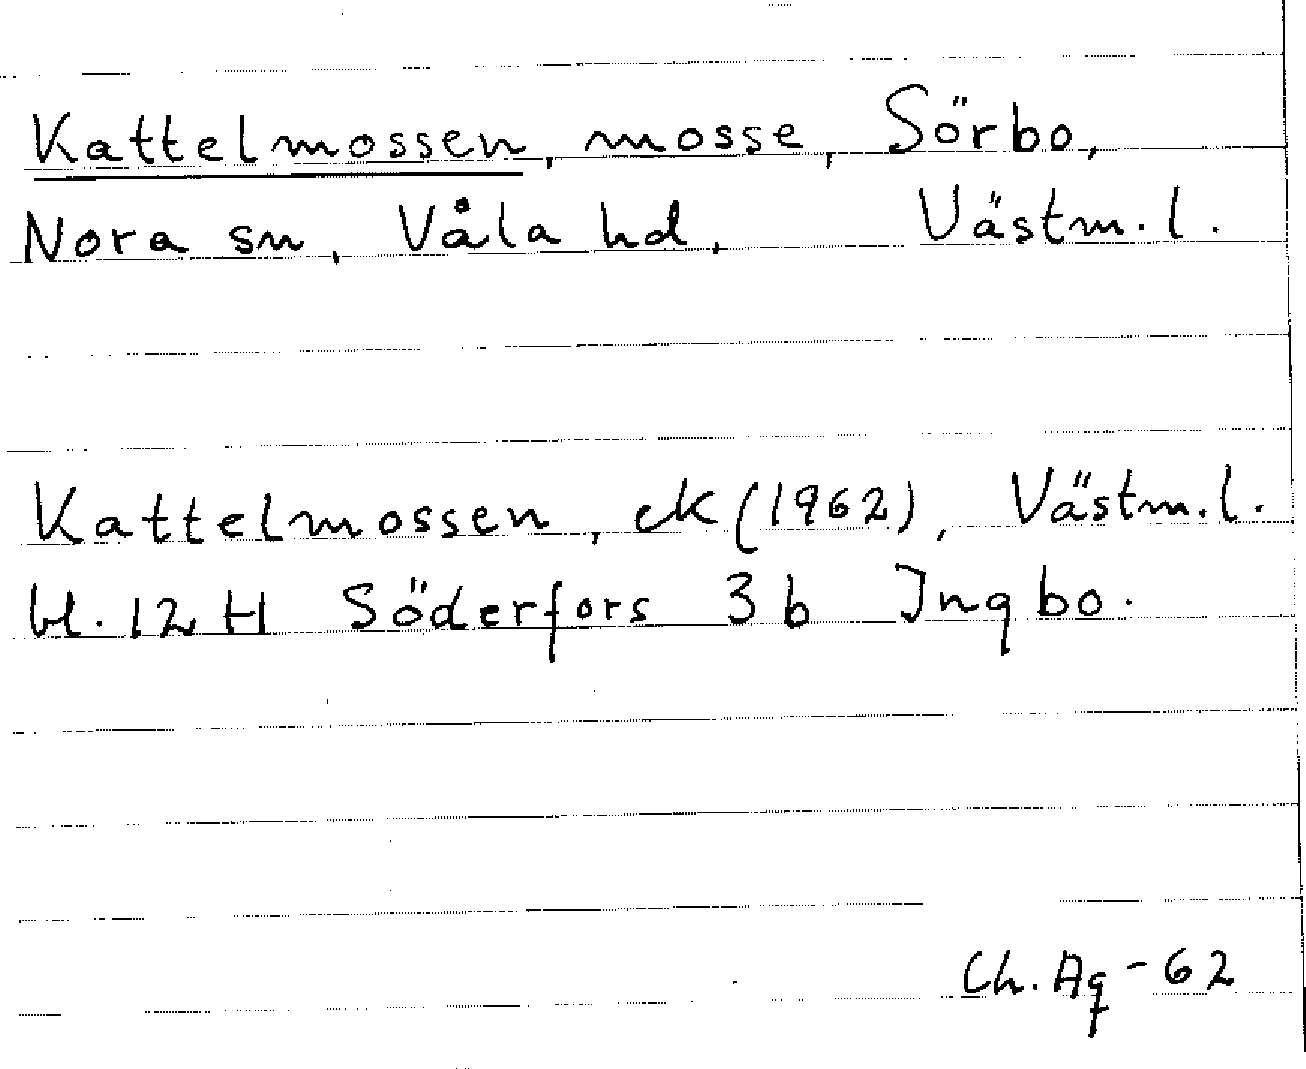 Kattelmossen, mosse, Sörbo,
Nora sn, Våla hd, Västm. l.
Kattelmossen, ek (1962), Västm. l.
bl. 12 H Söderfors 3 b Ingbo.
Ch. Ag -62